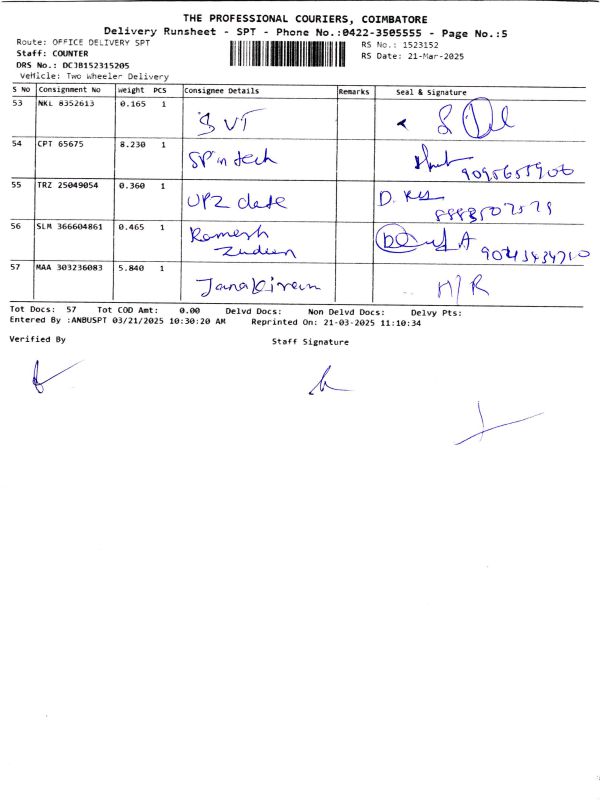 THE PROFESSIONAL COURIERS, COIMBATORE
Delivery Runsheet - SPT - Phone No.:0422-3505555 - Page No.:5
Route: OFFICE DELIVERY SPT
RS No.: 1523152
Staff: COUNTER
RS Date: 21-Mar-2025
DRS No.: DCJB152315205
Vehicle: Two Wheeler Delivery
S No Consignment No Weight PCS Consignee Details Remarks Seal & Signature
53 NKL 8352613 0.165 1 SVT
54 CPT 65675 8.230 1 SP in tech
55 TRZ 25049054 0.360 1 UPZ date D.
56 SLM 366604861 0.465 1 Ramesh
57 MAA 303236083 5.840 1 Janakiram N/R
Tot Docs: 57 Tot COD Amt: 0.00 Delvd Docs: Non Delvd Docs: Delvy Pts:
Entered By :ANBUSPT 03/21/2025 10:30:20 AM Reprinted On: 21-03-2025 11:10:34
Verified By Staff Signature